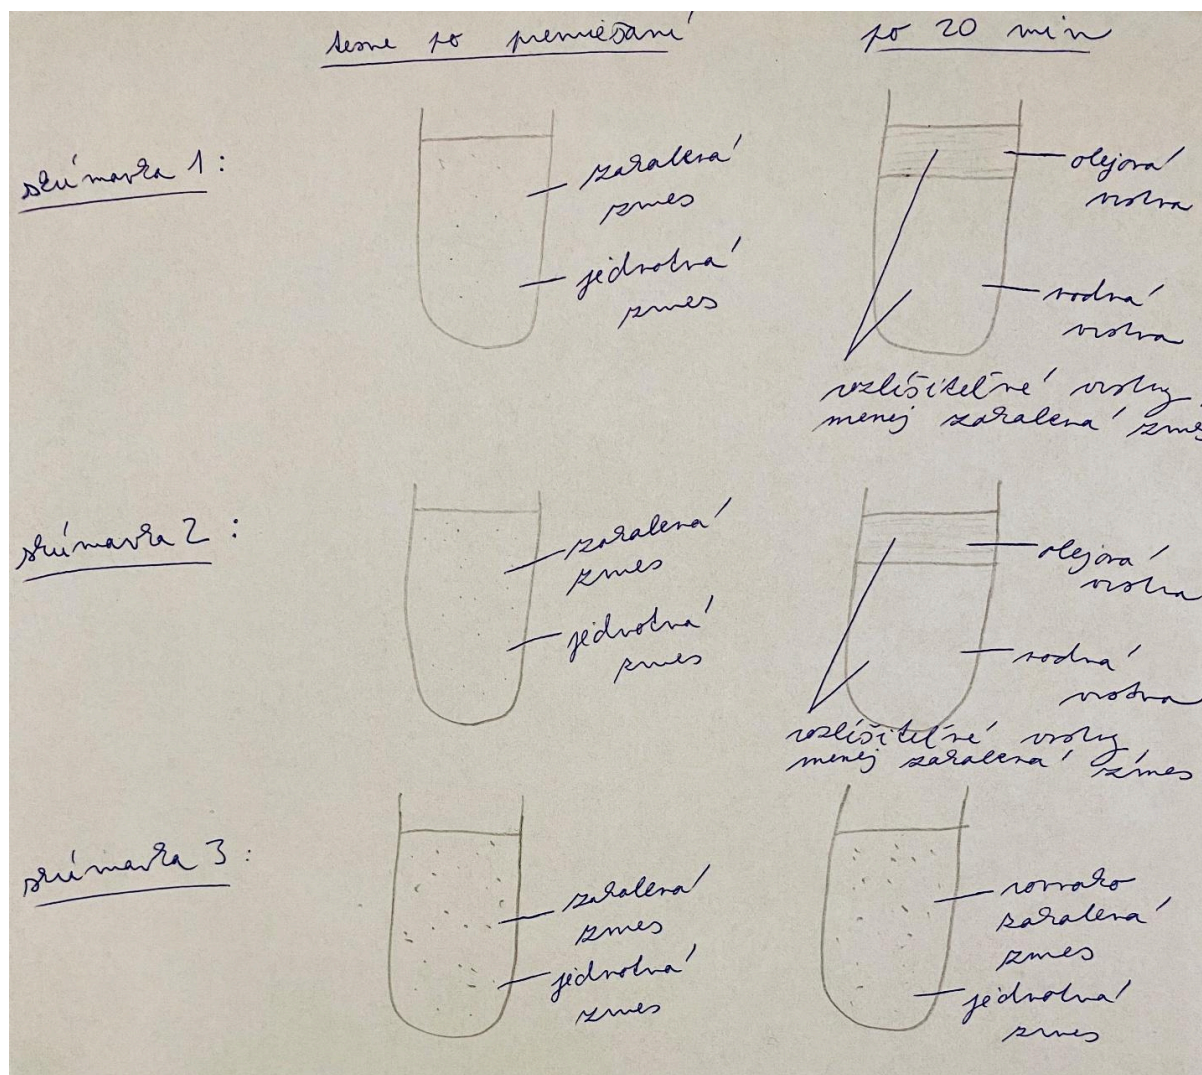 tesne po premiešaní
po 20 min
skúmavka 1:
zakalená
zmes
jednotná
zmes
olejová
vrstva
vodná
vrstva
rozlíšiteľné vrstvy
menej zakalená zmes
skúmavka 2:
zakalená
zmes
jednotná
zmes
olejová
vrstva
vodná
vrstva
rozlíšiteľné vrstvy
menej zakalená zmes
skúmavka 3:
zakalená
zmes
jednotná
zmes
rovnako
zakalená
zmes
jednotná
zmes